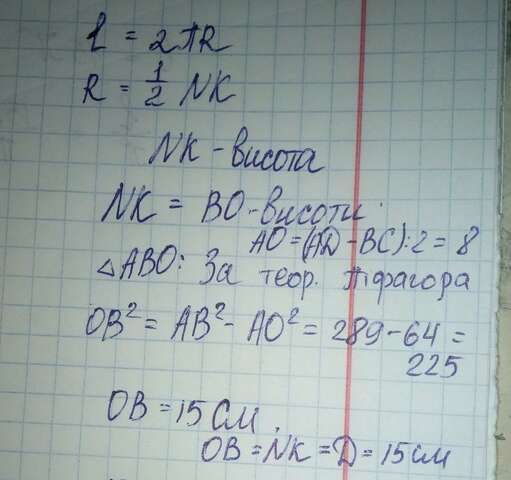 l = 2πR
R = 1/2 NK
NK - висота
NK = BO - висоти.
AO = (AD - BC) : 2 = 8
△ABO: За теор. Піфагора
OB² = AB² - AO² = 289 - 64 =
225
OB = 15 см.
OB = NK = D = 15 см